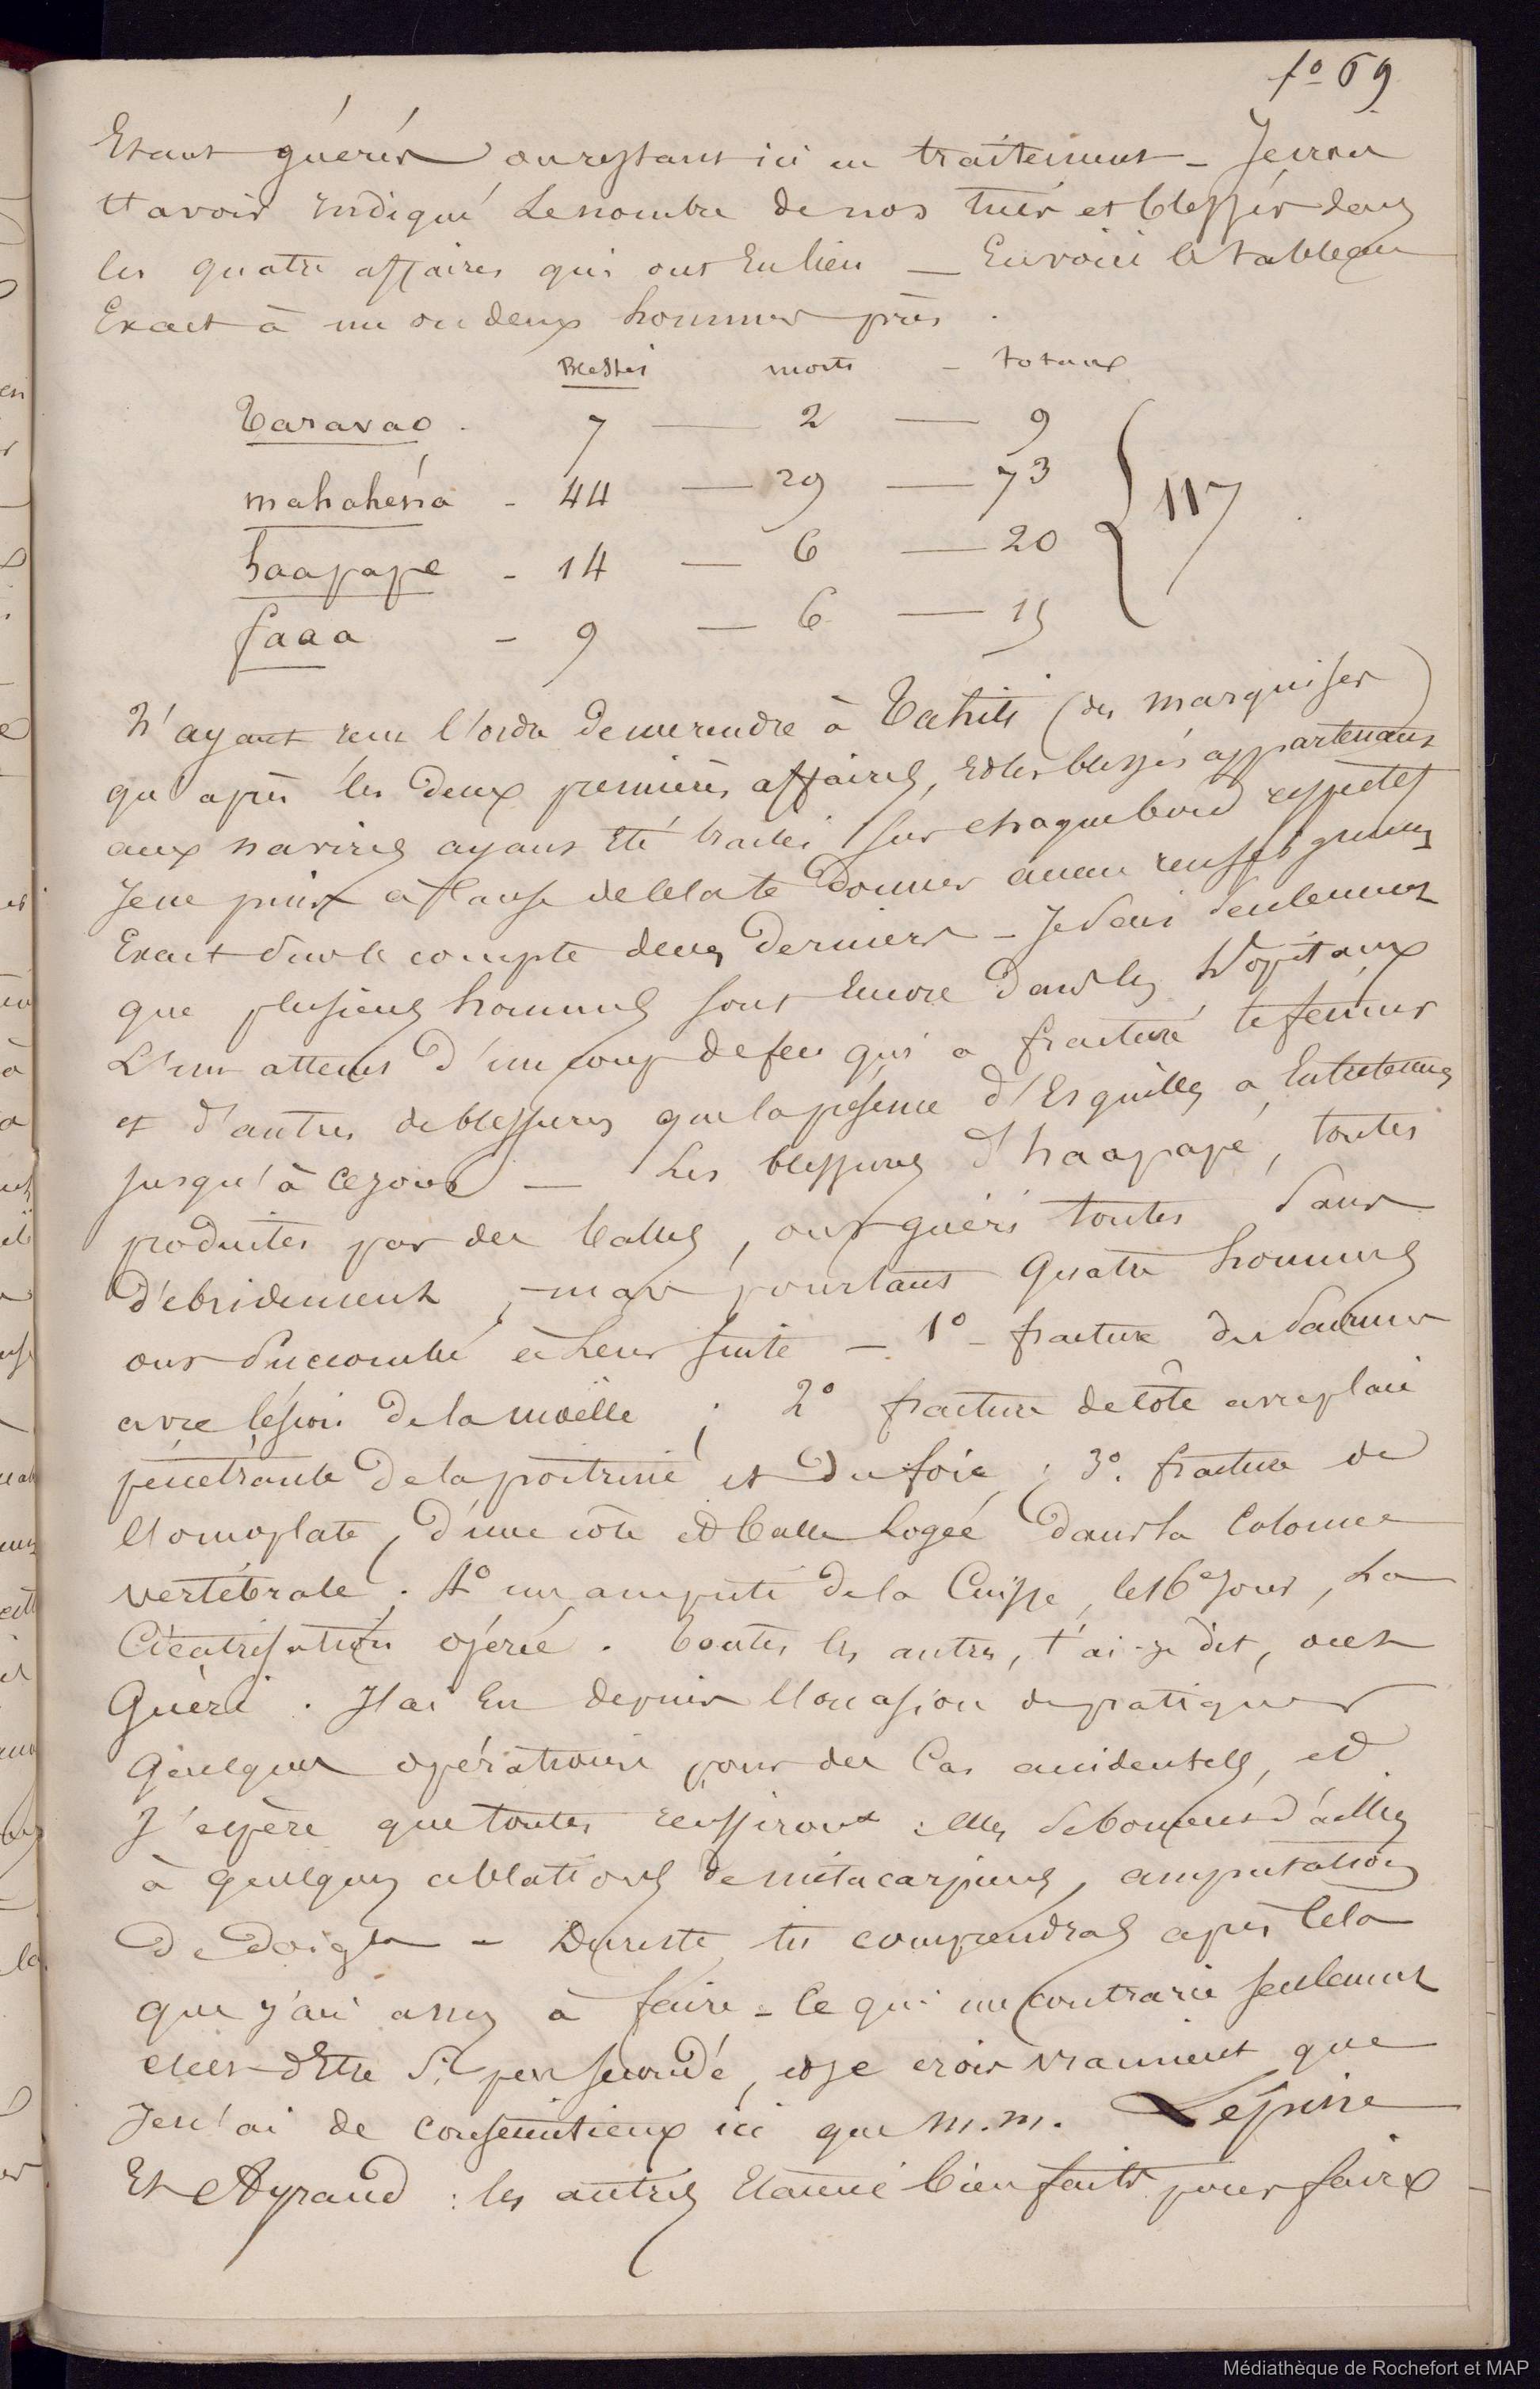 fo 69
Etant guéris ou restant ici en traitement - Je crois
t'avoir indiqué le nombre de nos tués et blessés dans
les quatre affaires qui ont Eu lieu — En voici le tableau
Exact à un ou deux hommes près.
Blessés morts - totaux
Taravao. 7 — 2 — 9
mahahéna - 44 — 29 — 73
haapape - 14 — 6 — 20
faaa - 9 — 6 — 15
117
N'ayant reçu l'ordre de me rendre à Tahiti (des marquises)
qu'après les deux premières affaires, et les blessés appartenant
aux navires ayant Eté traités sur chaque bord respectif
Je ne puis à cause de cela te donner aucun renseignement
Exact sur le compte de ces derniers - Je sais seulement
que plusieurs hommes sont Encore dans les hôpitaux
L'un atteint d'un coup de feu qui a fracturé le fémur
et d'autres de blessures que la présence d'Esquilles a Entretenues
jusqu'à ce jour — Les blessures d'haapape, toutes
produites par des balles, ont guéri toutes sans
débridement, mais pourtant quatre hommes
ont succombé à leur suite — 1° - fracture du sacrum
avec lésion de la moëlle ; 2° fracture de côte avec plaie
pénétrante de la poitrine et du foie ; 3°. fracture de
l'omoplate, d'une côte et balle logée dans la colonne
vertébrale. 4° un amputé de la Cuisse, le 16e jour, la
Cicatrisation opérée. Toutes les autres, t'ai-je dit, ont
Guéri. J'ai Eu depuis l'occasion de pratiquer
quelques opérations pour des Cas accidentels, et
J'espère que toutes réussiront : elles se bornent d'ailleurs
à quelques ablations de métacarpiens, amputations
de doigts - Du reste tu comprendras après cela
que j'ai assez à faire - Ce qui me contrarie seulement
c'est d'Etre si peu secondé, et je crois vraiment que
Je n'ai de consciencieux ici que M.M. Lépine
Et Ayraud : les autres Etaient bien faits pour faire
Médiathèque de Rochefort et MAP